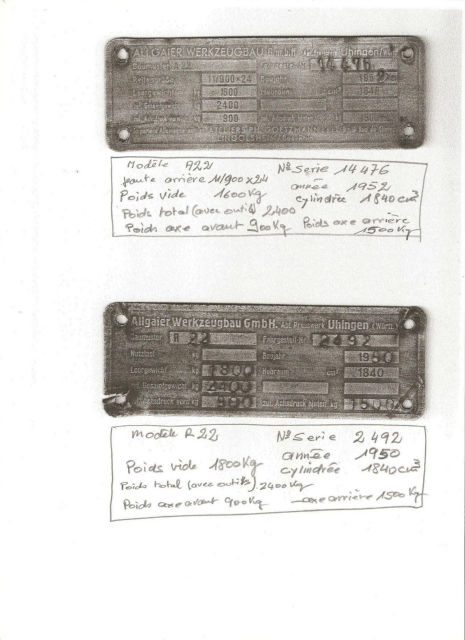 ALLGAIER WERKZEUGBAU GmbH Uhingen
A 22
14476
11/900×24 1952
1600 1840
2400
900 1500
Modèle A22 N° Serie 14476
route arrière 11/900 x 24 année 1952
Poids vide 1600 Kg cylindrée 1840 cm³
Poids total (avec outil) 2400
Poids axe avant 900 Kg Poids axe arrière 1500 Kg
Allgaier Werkzeugbau GmbH. Abt. Presswerk Uhingen (Württ.)
Baumuster R 22 Fahrgestell-Nr. 2492
Nutzlast kg Baujahr 1950
Leergewicht kg 1800 Hubraum cm³ 1840
zul. Gesamtgewicht kg 2400
zul. Achsdruck vorn kg 900 zul. Achsdruck hinten kg 1500
modèle R 22 N° Serie 2 492
année 1950
Poids vide 1800 Kg cylindrée 1840 cm³
Poids total (avec outils) 2400 Kg
Poids axe avant 900 Kg axe arrière 1500 Kg